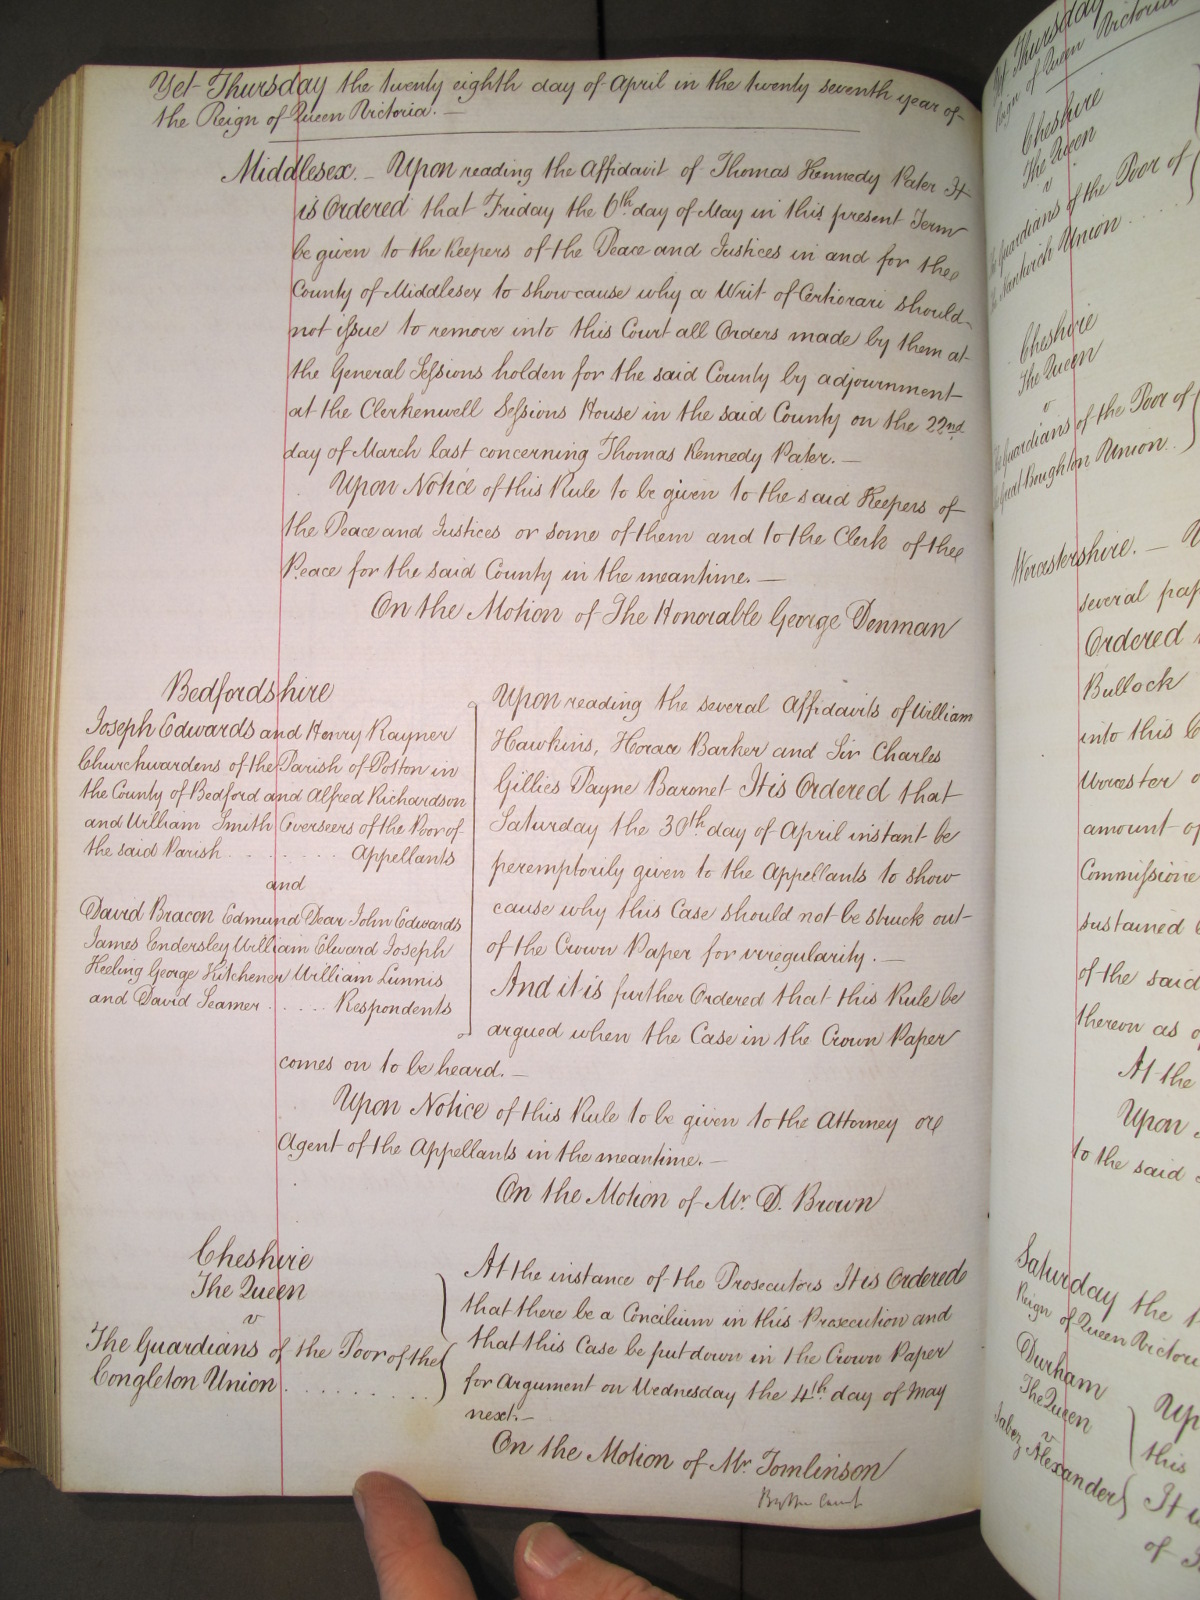 Yet Thursday the twenty eighth day of April in the twenty seventh year of
the Reign of Queen Victoria. —
Middlesex. – Upon reading the Affidavit of Thomas Kennedy Pater It
is Ordered that Friday the 6th day of May in this present Term
be given to the Keepers of the Peace and Justices in and for the
County of Middlesex to show cause why a Writ of Certiorari should
not issue to remove into this Court all Orders made by them at
the General Sessions holden for the said County by adjournment
at the Clerkenwell Sessions House in the said County on the 22nd
day of March last concerning Thomas Kennedy Pater. —
Upon Notice of this Rule to be given to the said Keepers of
the Peace and Justices or some of them and to the Clerk of the
Peace for the said County in the meantime. —
On the Motion of The Honorable George Denman
Bedfordshire
Joseph Edwards and Henry Rayner
Churchwardens of the Parish of Poton in
the County of Bedford and Alfred Richardson
and William Smith Overseers of the Poor of
the said Parish . . . . . . . . Appellants
and
David Bracon Edmund Dear John Edwards
James Endersley William Elward Joseph
Heeling George Kitchener William Lunnis
and David Seamer . . . . . Respondents
Upon reading the several Affidavits of William
Hawkins, Horace Barker and Sir Charles
Gillies Payne Baronet It is Ordered that
Saturday the 30th day of April instant be
peremptorily given to the Appellants to show
cause why this Case should not be struck out
of the Crown Paper for irregularity. —
And it is further Ordered that this Rule be
argued when the Case in the Crown Paper
comes on to be heard. —
Upon Notice of this Rule to be given to the Attorney or
Agent of the Appellants in the meantime. —
On the Motion of Mr. D. Brown
Cheshire
The Queen
v
The Guardians of the Poor of the
Congleton Union . . . . . . . . .
At the instance of the Prosecutors It is Ordered
that there be a Concilium in this Prosecution and
that this Case be put down in the Crown Paper
for Argument on Wednesday the 4th day of May
next. —
On the Motion of Mr Tomlinson
By the Court
Yet Thursday
Reign of Queen Victoria
Cheshire
The Queen
v
Guardians of the Poor of
Nantwich Union . . . . .
Cheshire
The Queen
v
Guardians of the Poor of
Great Boughton Union . .
Worcestershire. —
several pap
Ordered
Bullock
into this C
Worcester
amount of
Commissione
sustained
of the said
thereon as
At the
Upon
to the said
Saturday the
Reign of Queen Victori
Durham
The Queen
v
Jabez Alexander
Up
this
It
of